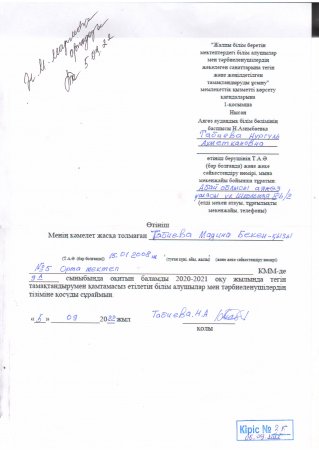 "Жалпы білім беретін
мектептердегі білім алушылар
мен тәрбиеленушілердің
жекелеген санаттарына тегін
және жеңілдетілген
тамақтандыруды ұсыну"
мемлекеттік қызметі көрсету
қағидаларына
1-қосымша
Нысан
Аягөз аудандық білім бөлімінің
басшысы Н.Азимбаева
Табиева Нургуль
Ахметкановна
өтініш берушінің Т.А.Ә
(бар болғанда) және жеке
сәйкестендіру нөмірі, мына
мекенжайы бойынша тұратын:
Абай облысы аягөз
ул. Школьная 86/2
(елді мекен атауы, тұрғылықты
мекенжайы, телефоны)
5.09.22
Өтініш
Менің кәмелет жасқа толмаған Табиева Мадина Бекен-қызы
15.01.2008ж
(Т.А.Ә (бар болғанда) (туған күні, айы, жылы) және жеке сәйкестендіру нөмірі)
№5 Орта мектеп КММ-де
9А сыныбында оқитын баламды 2020-2021 оқу жылында тегін
тамақтандырумен қамтамасыз етілетін білім алушылар мен тәрбиеленушілердің
тізіміне қосуды сұраймын.
« 5 » 09 2022 жыл Табиева.Н.А
қолы
Кіріс №
05.09.2022